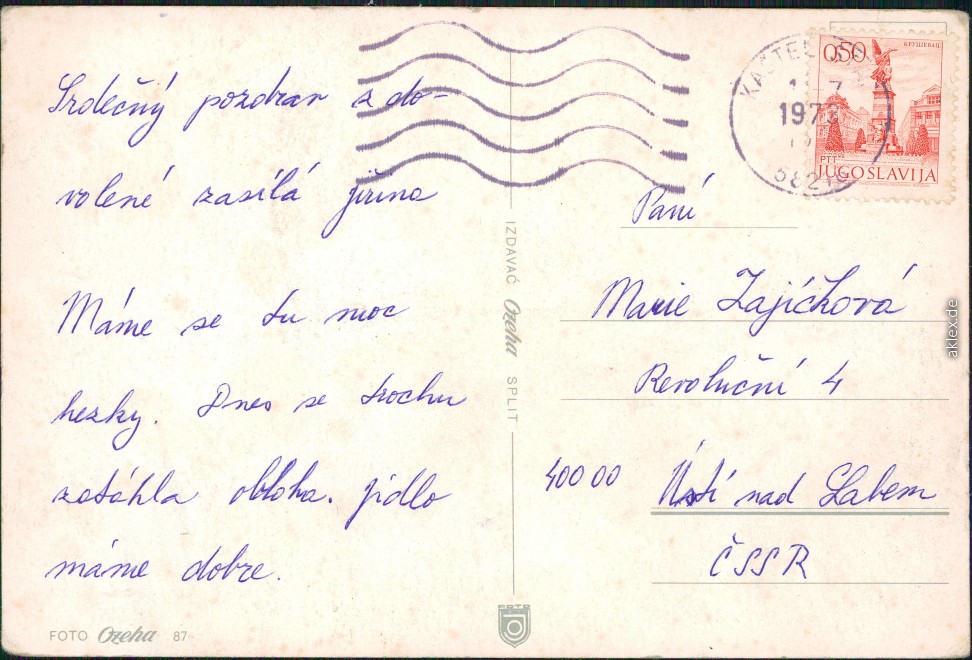 Srdečný pozdrav z do-
volené zasílá Jiřina
Máme se tu moc
hezky. Dnes se trochu
zatáhla obloha. Jídlo
máme dobré.
FOTO Ozeha 87
IZDAVAČ Ozeha SPLIT
FOTO
0,50
КРУШЕВАЦ
PTT
JUGOSLAVIJA
7
58215
Paní
Marie Zajíčková
Revoluční 4
400 00 Ústí nad Labem
ČSSR
aklex.de